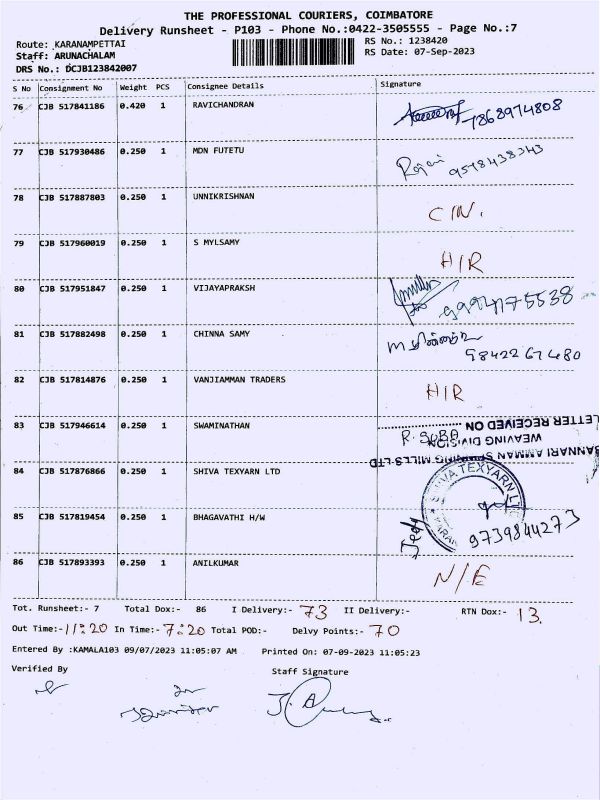 THE PROFESSIONAL COURIERS, COIMBATORE
Delivery Runsheet - P103 - Phone No.:0422-3505555 - Page No.:7
Route: KARANAMPETTAI
RS No.: 1238420
Staff: ARUNACHALAM
RS Date: 07-Sep-2023
DRS No.: DCJB123842007
S No Consignment No Weight PCS Consignee Details Signature
76 CJB 517841186 0.420 1 RAVICHANDRAN 7868974808
77 CJB 517930486 0.250 1 MDN FUTETU Rajai 9578438343
78 CJB 517887803 0.250 1 UNNIKRISHNAN C IN.
79 CJB 517960019 0.250 1 S MYLSAMY H/R
80 CJB 517951847 0.250 1 VIJAYAPRAKSH 9994175538
81 CJB 517882498 0.250 1 CHINNA SAMY 9842267480
82 CJB 517814876 0.250 1 VANJIAMMAN TRADERS H/R
83 CJB 517946614 0.250 1 SWAMINATHAN R. SOBA
LETTER RECEIVED ON
WEAVING DIVISION
BANNARI AMMAN SPINNING MILLS LTD
84 CJB 517876866 0.250 1 SHIVA TEXYARN LTD
SHIVA TEXYARN LTD
85 CJB 517819454 0.250 1 BHAGAVATHI H/W 9739844273
86 CJB 517893393 0.250 1 ANILKUMAR N/E
Tot. Runsheet:- 7 Total Dox:- 86 I Delivery:- 73 II Delivery:- RTN Dox:- 13.
Out Time:- 11:20 In Time:- 7:20 Total POD:- Delvy Points:- 70
Entered By :KAMALA103 09/07/2023 11:05:07 AM Printed On: 07-09-2023 11:05:23
Verified By Staff Signature